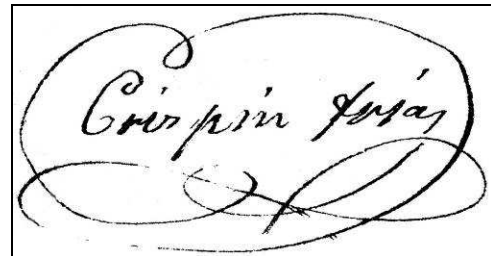 Crispin Arias